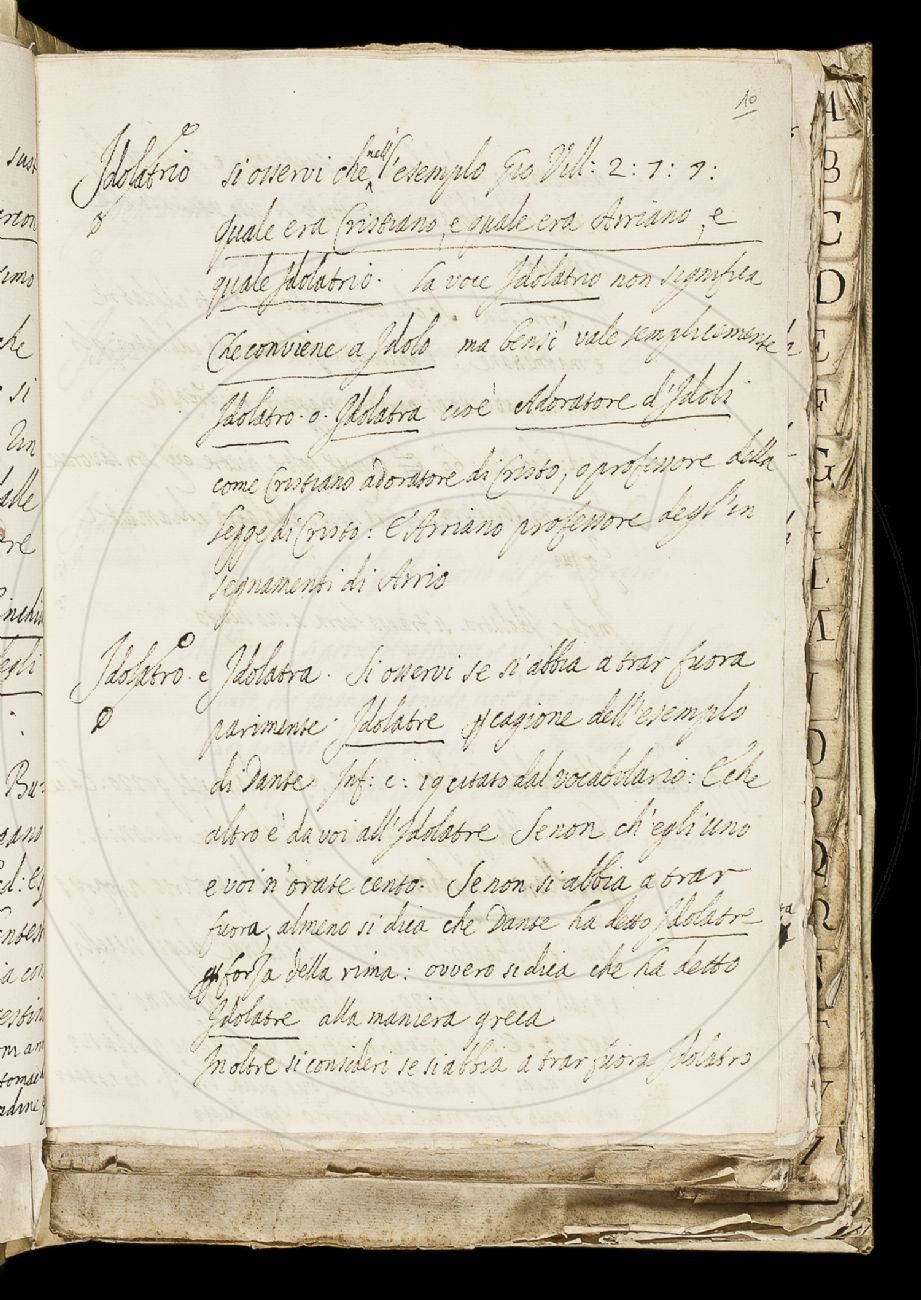 10
Idolatrio si osservi che nell' esempio Gio Vill: 2: 7: 9:
quale era Cristiano, e quale era Arriano, e
quale Idolatrio. La voce Idolatrio non significa
Che conviene a Idolo ma bensi vale semplicemente
Idolatro o Idolatra cioè Adoratore d'Idoli
come Cristiano adoratore di Cristo, o professore della
legge di Cristo: E Arriano professore degl'in
segnamenti di Arrio
Idolatro e Idolatra. Si osservi se si abbia a trar fuora
parimente Idolatre cagione dell'esempio
di Dante Inf: c: 19 citato dal vocabolario: E che
altro è da voi all'Idolatre Se non ch'egli uno
e voi n'orate cento. Se non si abbia a trar
fuora, almeno si dica che Dante ha detto Idolatre
forza della rima: ovvero si dica che ha detto
Idolatre alla maniera greca
Inoltre si consideri se si abbia a trar fuora Idolatro
A
B
C
D
E
F
G
L
M
N
O
P
Q
R
S
T
V
Z